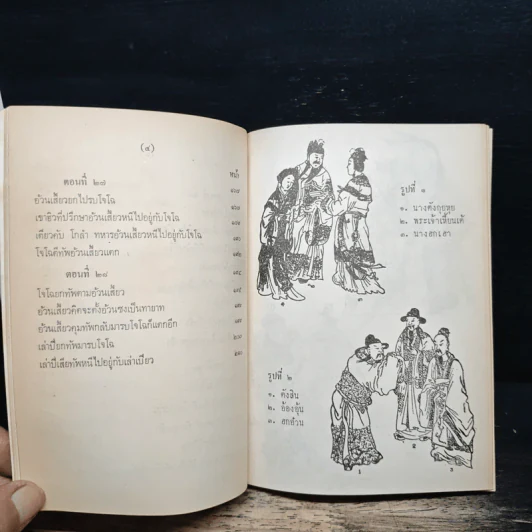 (๔)
หน้า
ตอนที่ ๒๗
อ้วนเสี้ยวยกไปรบโจโฉ
เขาฮิวที่ปรึกษาอ้วนเสี้ยวหนีไปอยู่กับโจโฉ
เตียวคับ โกลำ ทหารอ้วนเสี้ยวหนีไปอยู่กับโจโฉ
โจโฉตีทัพอ้วนเสี้ยวแตก
ตอนที่ ๒๘
โจโฉยกทัพตามอ้วนเสี้ยว
อ้วนเสี้ยวคิดจะตั้งอ้วนซงเป็นทายาท
อ้วนเสี้ยวคุมทัพกลับมารบโจโฉก็แตกอีก
เล่าปี่ยกทัพมารบโจโฉ
เล่าปี่เสียทัพหนีไปอยู่กับเล่าเปียว
รูปที่ ๑
๑. นางตังกุยหุย
๒. พระเจ้าเหี้ยนเต้
๓. นางฮกเฮา
๑ ๒ ๓
รูปที่ ๒
๑. ตังสิน
๒. อ้องอุ้น
๓. ฮกอ้วน
๑ ๒ ๓